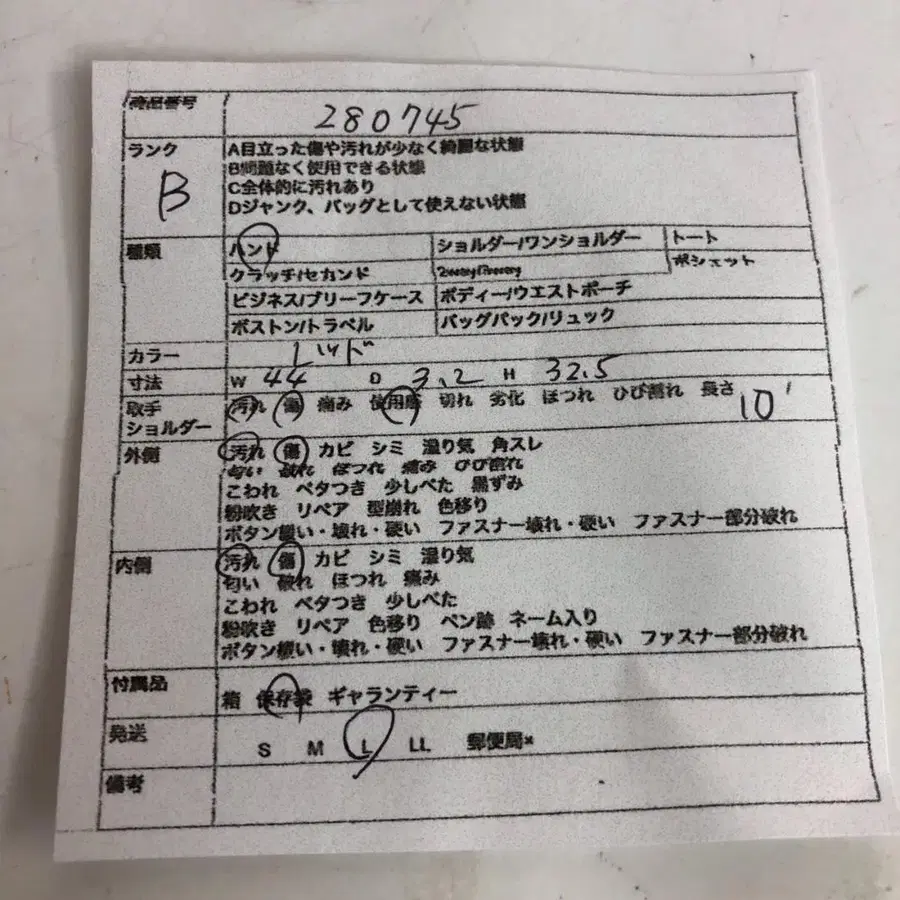 商品番号 280745
ランク A目立った傷や汚れが少なく綺麗な状態
B問題なく使用できる状態
B
C全体的に汚れあり
Dジャンク、バッグとして使えない状態
種類 ハンド ショルダー/ワンショルダー トート
クラッチ/セカンド ポシェット
ビジネス/ブリーフケース ボディー/ウエストポーチ
ボストン/トラベル バッグパック/リュック
カラー レッド
寸法 W 44 D 3.2 H 32.5
取手 汚れ 傷 痛み 使用感 切れ 劣化 ほつれ ひび割れ 長さ 10
ショルダー
外側 汚れ 傷 カビ シミ 湿り気 角スレ
匂い 破れ ほつれ 痛み ひび割れ
こわれ ベタつき 少しべた 黒ずみ
粉吹き リペア 型崩れ 色移り
ボタン緩い・壊れ・硬い ファスナー壊れ・硬い ファスナー部分破れ
内側 汚れ 傷 カビ シミ 湿り気
匂い 破れ ほつれ 痛み
こわれ ベタつき 少しべた
粉吹き リペア 色移り ペン跡 ネーム入り
ボタン緩い・壊れ・硬い ファスナー壊れ・硬い ファスナー部分破れ
付属品 箱 保存袋 ギャランティー
発送 S M L LL 郵便局×
備考